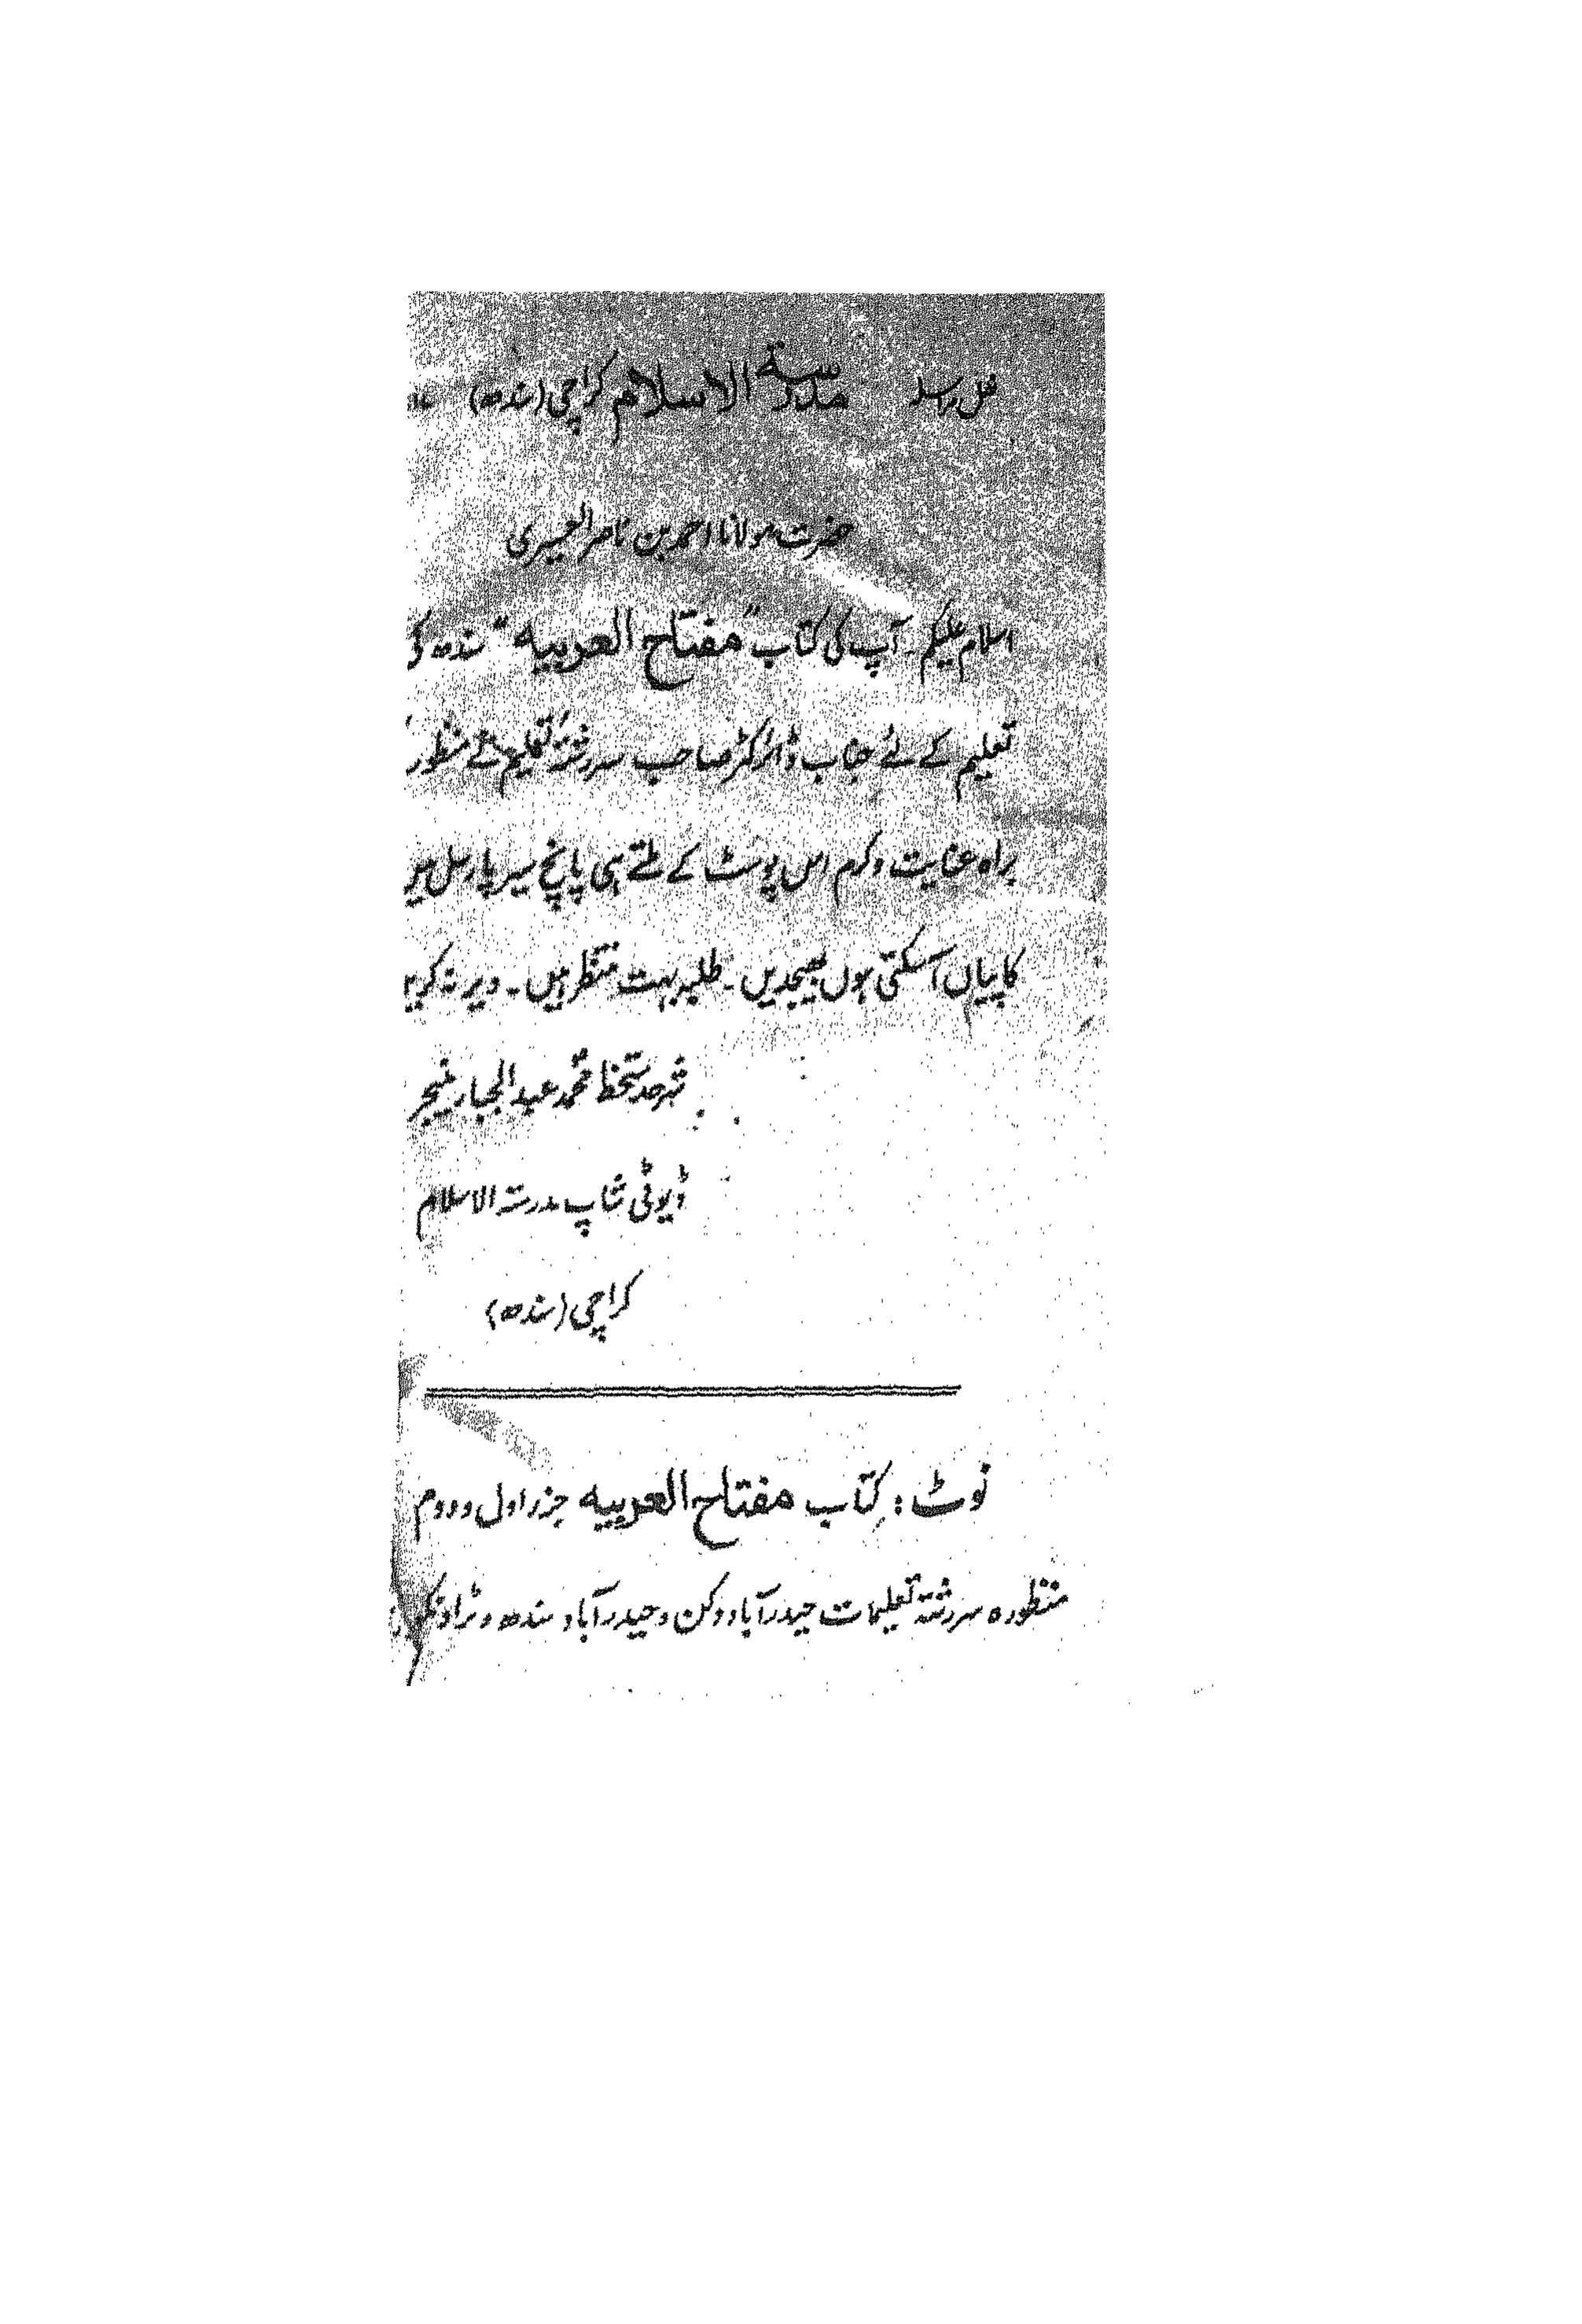 نقل مراسلہ مدرسة الاسلام کراچی (سندھ)
حضرت مولانا احمد بن ناصر العسیری
اسلام علیکم ۔ آپ کی کتاب "مفتاح العربیہ" سندھ
تعلیم کے لئے جناب ڈائرکٹر صاحب سررشتۂ تعلیم نے منظور
براہ عنایت و کرم اس پوسٹ کے ملتے ہی پانچ سیر پارسل میں
کاپیاں آسکتی ہوں بھیجدیں ۔ طلبہ بہت منتظر ہیں ۔ دیر نہ کریں
شرحدستخط محمد عبدالجبار منیجر
ڈیوٹی شاپ مدرستہ الاسلام
کراچی (سندھ)
نوٹ : کتاب مفتاح العربیہ جزر اول و دوم
منظورہ سررشتہ تعلیمات حیدرآباد دکن و حیدرآباد سندھ و